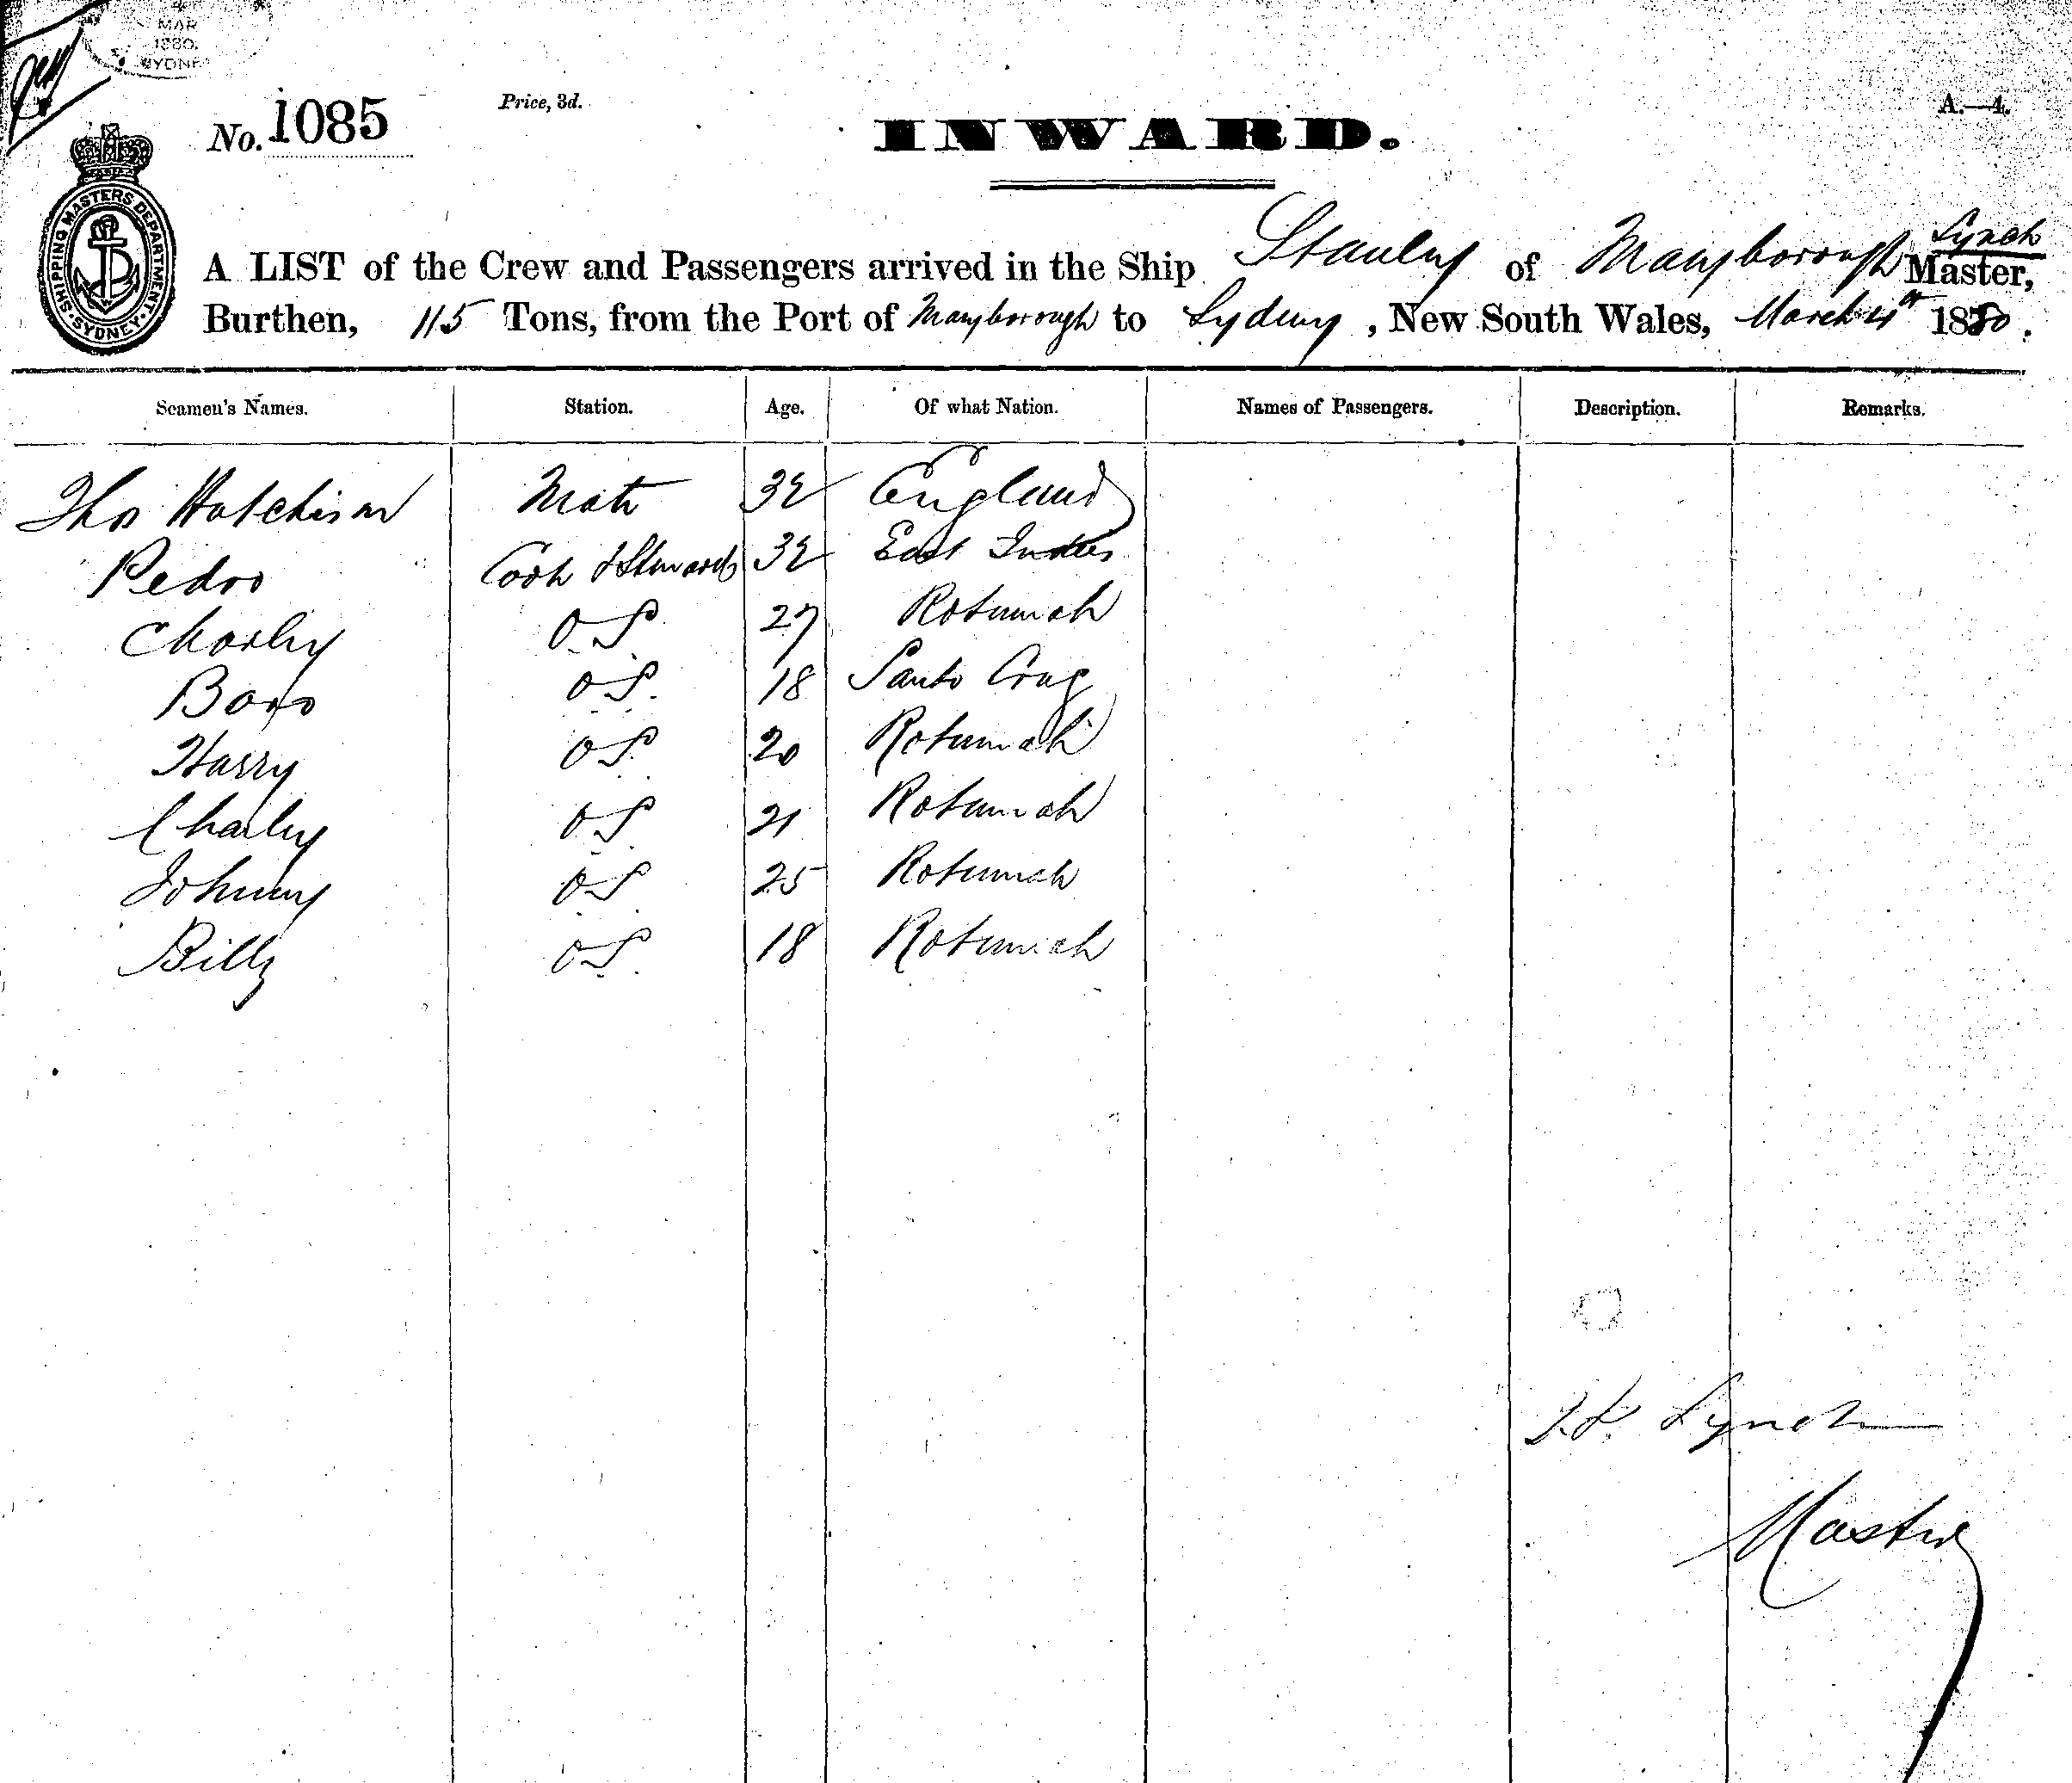 MAR
1880.
SYDNEY
No. 1085
Price, 3d.
INWARD.
A.—4.
SHIPPING MASTERS DEPARTMENT SYDNEY
A LIST of the Crew and Passengers arrived in the Ship Stanley of Maryborough Lynch Master,
Burthen, 115 Tons, from the Port of Maryborough to Sydney, New South Wales, March 4th 1880.
Seamen's Names. Station. Age. Of what Nation. Names of Passengers. Description. Remarks.
Thos Hutchison Mate 32 England
Pedro Cook & Steward 32 East Indies
Charley O.S. 27 Rotumah
Boro O.S. 18 Santo Cruz
Harry O.S. 20 Rotumah
Charley O.S. 21 Rotumah
Johnny O.S. 25 Rotumah
Billy O.S. 18 Rotumah
Lynch
Master